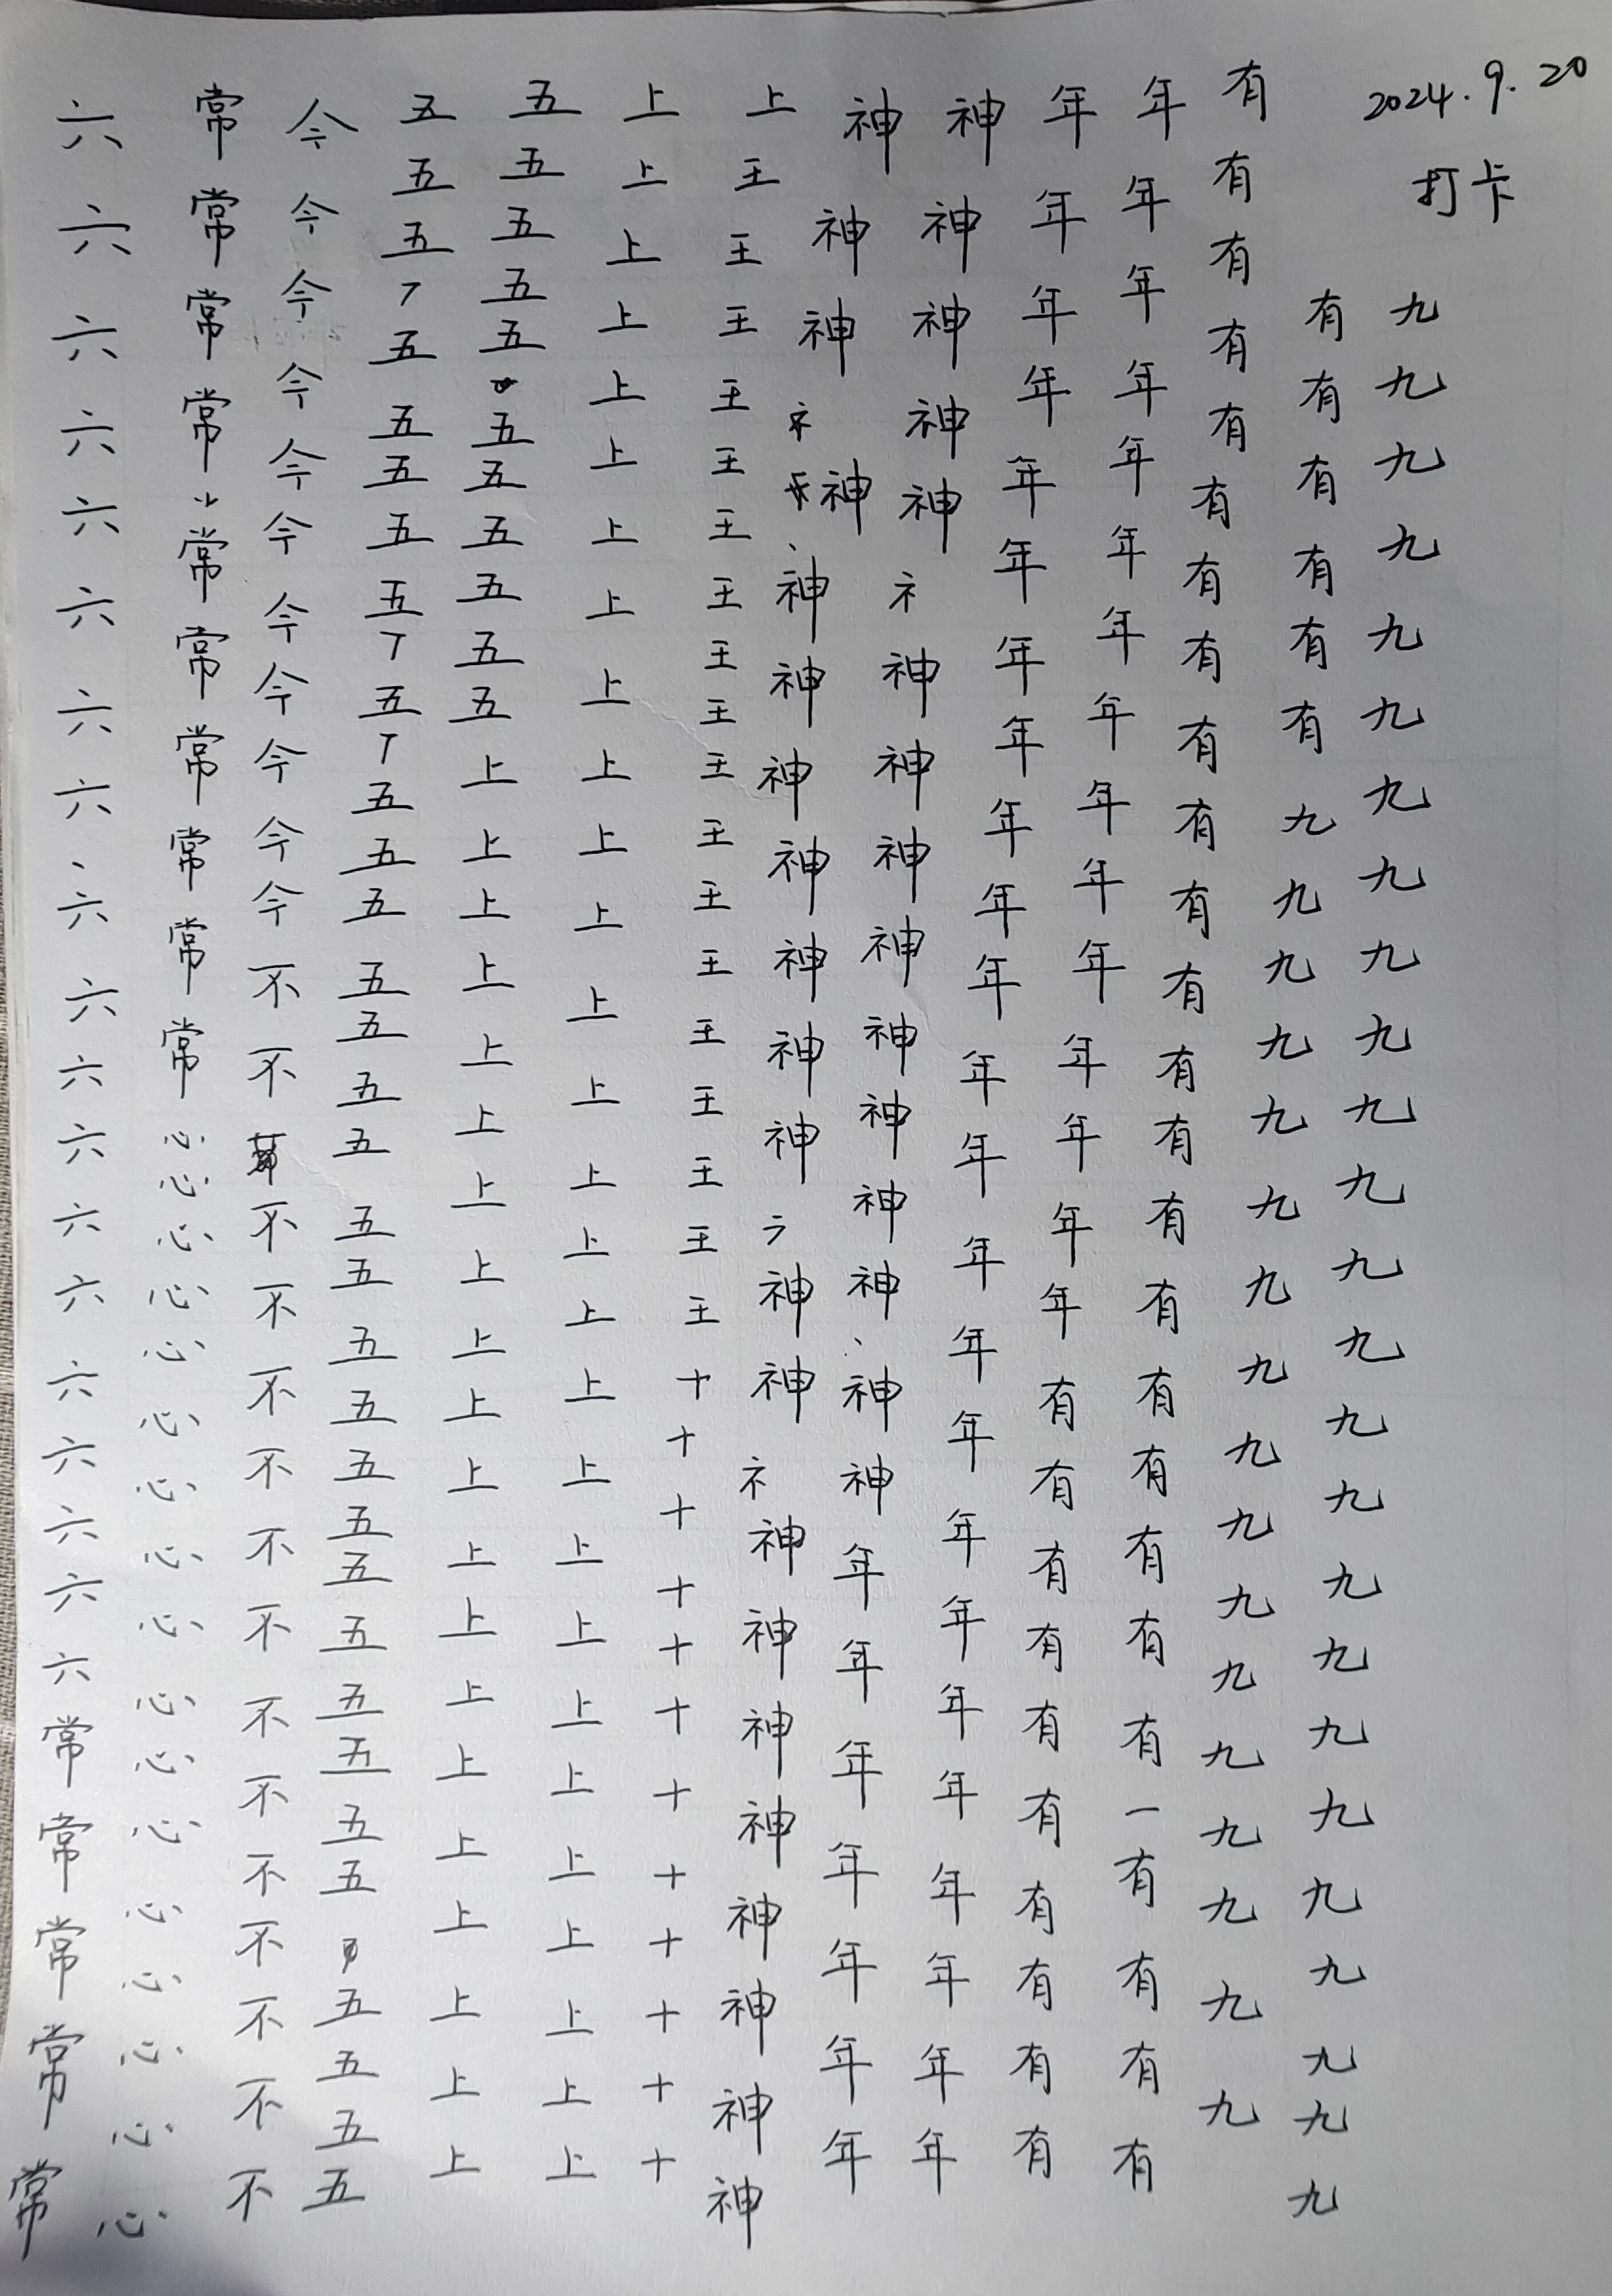 2024.9.20
打卡
九九九九九九九九九九九九九九九九九九九九九九九九九
有有有有有有九九九九九九九九九九九九九九九九九
有有有有有有有有有有有有有有有有有有有有有一有有有有
年年年年年年年年年年年年年年年有有有有有有有有有有
年年年年年年年年年年年年年年年年年年年年年年年年
神神神神神礻神神神神神神神神丶神神年年年年年年年
神神神礻神丶神神神神神神神神神礻神神神神神神神神
上王王王王王王王王王王王王王王王王王王十十十十十十十十十十十十
上上上上上上上上上上上上上上上上上上上上上上上上上上上上
五五五五五五五五五五五上上上上上上上上上上上上上上上上上上上上
五五五五五五五五五五五五五五五五五五五五五五五五五五五五五五五五
今今今今今今今今今今今不不不不不不不不不不不不不不不
常常常常常常常常常常心心心心心心心心心心心心心心心心心
六六六六六六六六丶六六六六六六六六六六六常常常常常